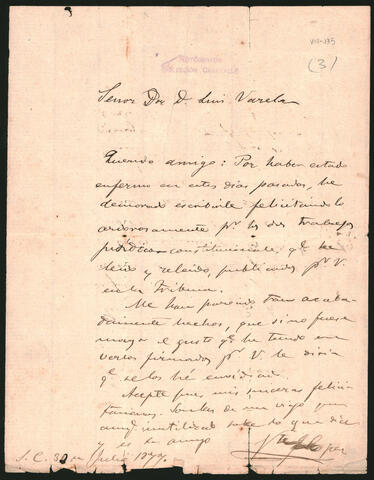 VIII-175
(3)
Señor Dor D. Luis Varela
Querido amigo: Por haber estado
enfermo en estos días pasados, he
demorado escribirle felicitándolo
ardorosamente pr los dos trabajos
jurídico-constituciente, qe he
leído y releído, publicados pr V.
en la Tribuna.
Me han parecido tan acaba-
damente hechos, que si no fuera
mayor el gusto qe he tenido en
verlos firmados pr V. le diría
qe se los hé envidiado.
Acepte pues mis sinceras felici-
taciones. Son las de un viejo
inutilizado
y es su amigo
S. C. Julio